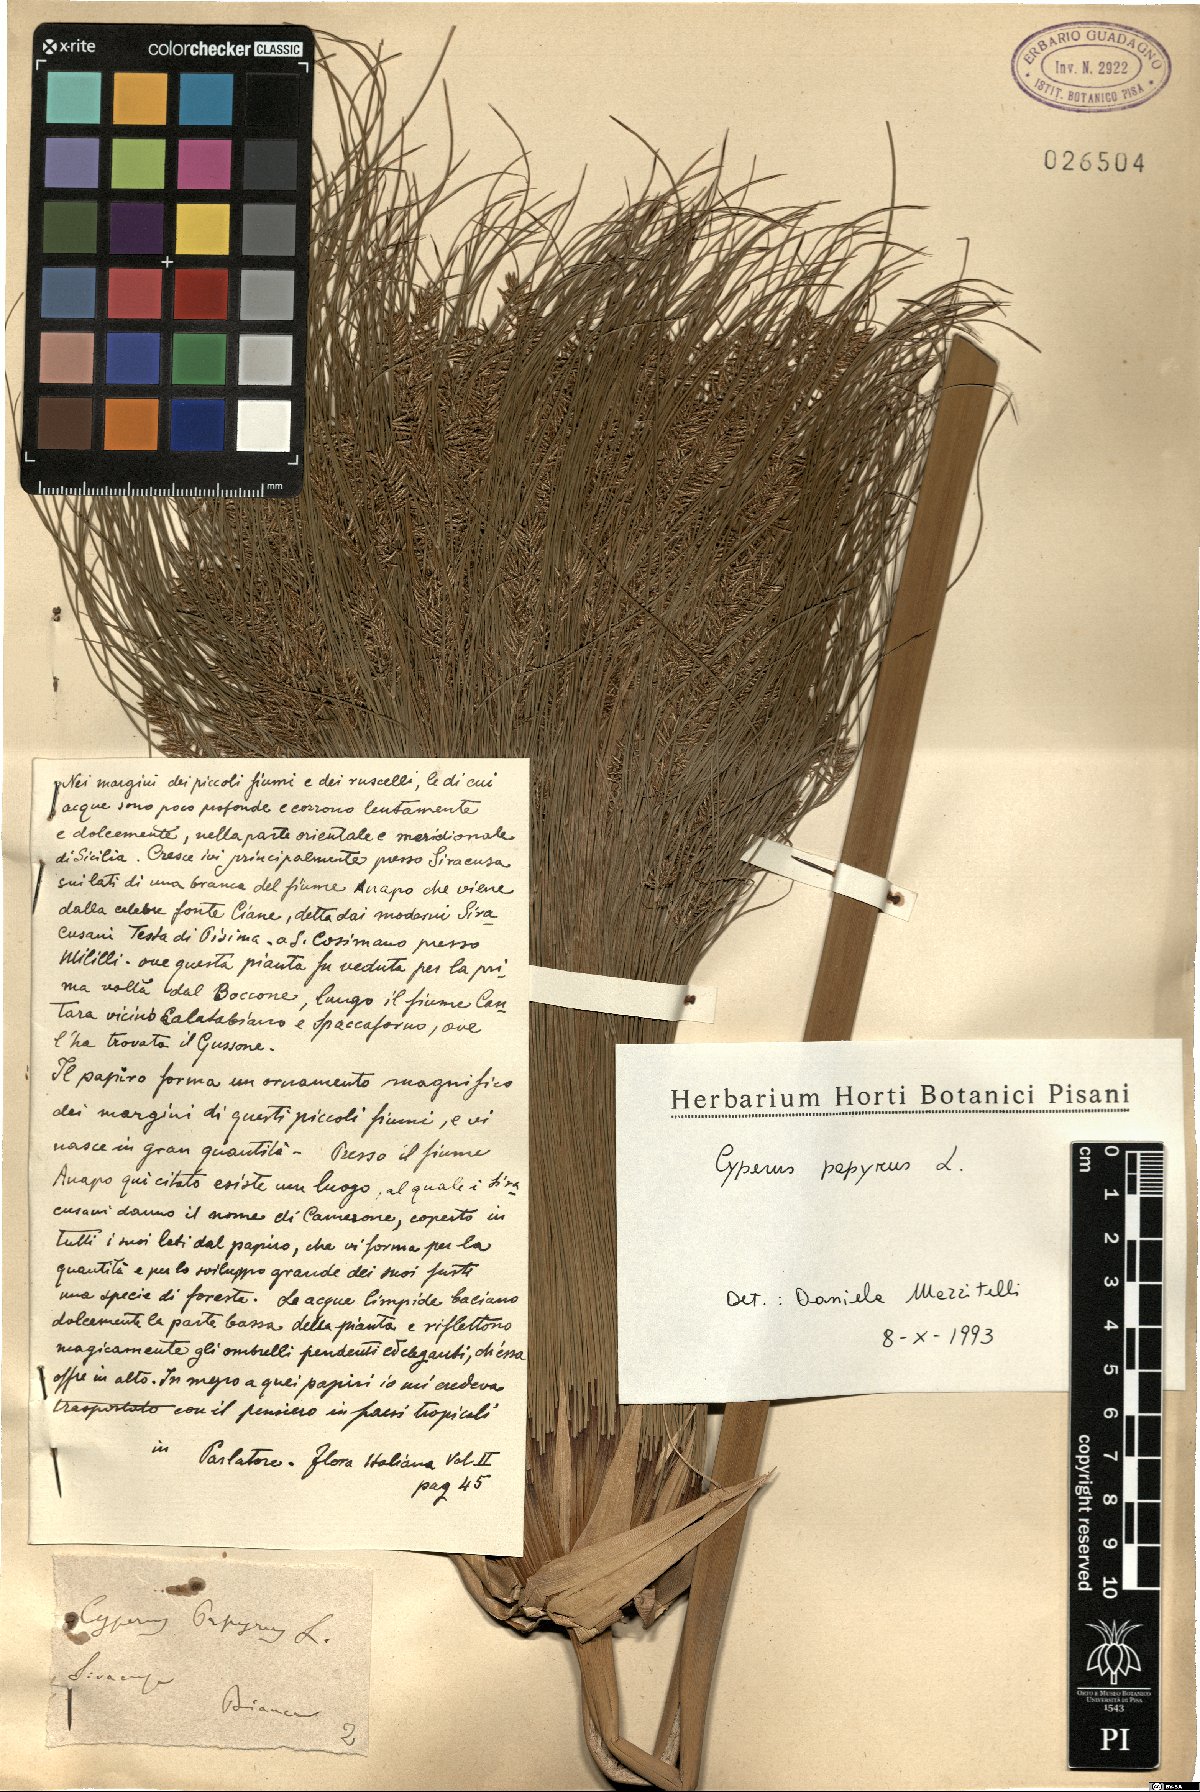 x-rite colorchecker CLASSIC
mm
ERBARIO GUADAGNO
Inv. N. 2922
ISTIT. BOTANICO PISA
026504
Nei margini dei piccoli fiumi e dei ruscelli, le di cui
acque sono poco profonde e corrono lentamente
e dolcemente, nella parte orientale e meridionale
di Sicilia. Cresce ivi principalmente presso Siracusa
sui lati di una branca del fiume Anapo che viene
dalla celebre fonte Ciane, detta dai moderni Sira-
cusani Testa di Pisima - a S. Cosimano presso
Mililli - ove questa pianta fu veduta per la pri-
ma volta dal Boccone, lungo il fiume Can-
tara vicino Calatabiano e Spaccaforno, ove
l'ha trovata il Gussone.
Il papiro forma un ornamento magnifico
dei margini di questi piccoli fiumi, e vi
nasce in gran quantità - Presso il fiume
Anapo qui citato esiste un luogo, al quale i Sira-
cusani danno il nome di Camerone, coperto in
tutti i suoi lati dal papiro, che vi forma per la
quantità e per lo sviluppo grande dei suoi fusti
una specie di foresta. Le acque limpide baciano
dolcemente la parte bassa della pianta e riflettono
magicamente gli ombrelli pendenti ed eleganti, ch'essa
offre in alto. In mezzo a quei papiri io mi credeva
trasportato con il pensiero in paesi tropicali
in Parlatore - Flora Italiana Vol. II
pag 45
Herbarium Horti Botanici Pisani
Cyperus papyrus L.
Det.: Daniela Mezzitelli
8-X-1993
Cyperus Papyrus L.
Siracusa
Bianca
2
cm
0
1
2
3
4
5
6
7
8
9
10
copyright reserved
ORTO E MUSEO BOTANICO
UNIVERSITÀ DI PISA
1543
PI